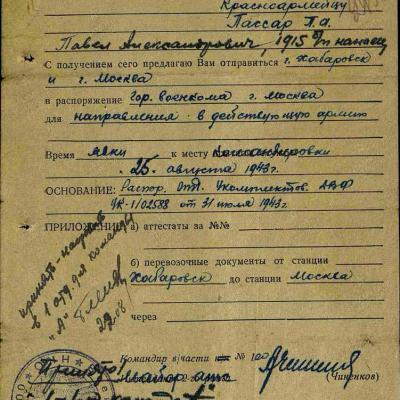 Красноармейцу
Пассар П.А.
Павел Александрович, 1915 б/п нанаец
С получением сего предлагаю Вам отправиться г. Хабаровск
и г. Москва
в распоряжение Гор. военкома г. Москва
для направления в действующую армию
Время явки к месту
25 августа 1943 г.
ОСНОВАНИЕ: Распор. Отд. Укомплектов. ДВФ
УК-1/02588 от 31 июля 1943 г.
ПРИЛОЖЕНИЕ: а) аттестаты за №№
б) перевозочные документы от станции
Хабаровск до станции Москва
через
принять
в 1 отд. для команды
"А"
Командир в/части № 100
(Чиненков)
майор